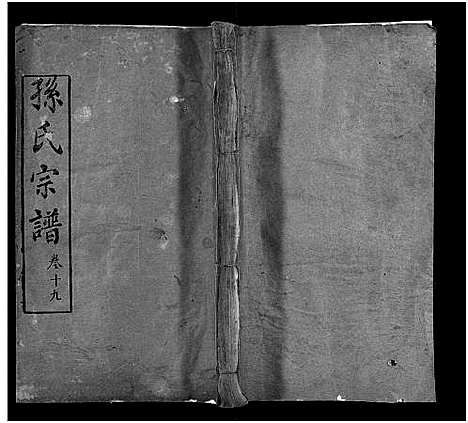 孫氏宗譜 卷十九